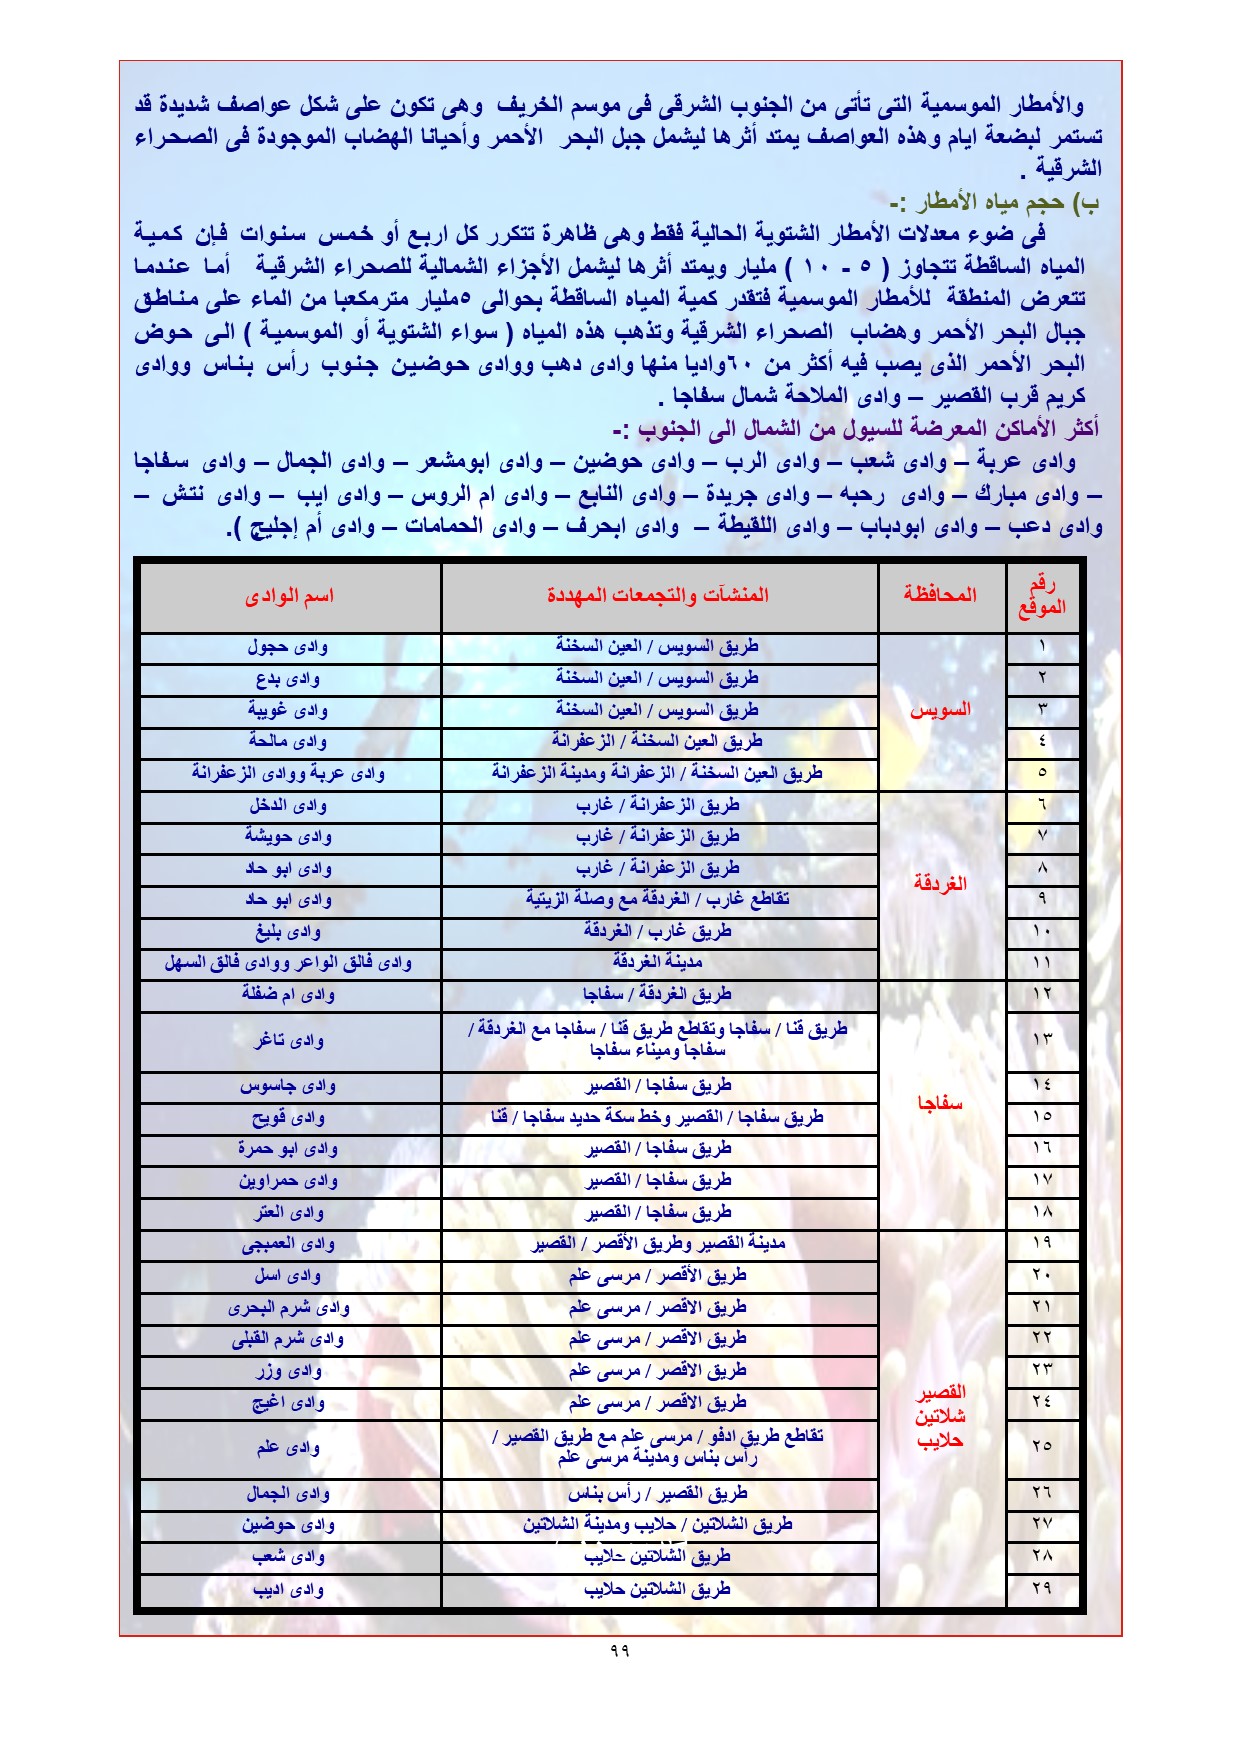 والأمطار الموسمية التى تأتى من الجنوب الشرقى فى موسم الخريف وهى تكون على شكل عواصف شديدة قد
تستمر لبضعة ايام وهذه العواصف يمتد أثرها ليشمل جبل البحر الأحمر وأحيانا الهضاب الموجودة فى الصحراء
الشرقية .
ب) حجم مياه الأمطار :-
فى ضوء معدلات الأمطار الشتوية الحالية فقط وهى ظاهرة تتكرر كل اربع أو خمس سنوات فإن كمية
المياه الساقطة تتجاوز ( ٥ - ١٠ ) مليار ويمتد أثرها ليشمل الأجزاء الشمالية للصحراء الشرقية أما عندما
تتعرض المنطقة للأمطار الموسمية فتقدر كمية المياه الساقطة بحوالى ٥مليار مترمكعبا من الماء على مناطق
جبال البحر الأحمر وهضاب الصحراء الشرقية وتذهب هذه المياه ( سواء الشتوية أو الموسمية ) الى حوض
البحر الأحمر الذى يصب فيه أكثر من ٦٠واديا منها وادى دهب ووادى حوضين جنوب رأس بناس ووادى
كريم قرب القصير – وادى الملاحة شمال سفاجا .
أكثر الأماكن المعرضة للسيول من الشمال الى الجنوب :-
وادى عربة – وادى شعب – وادى الرب – وادى حوضين – وادى ابومشعر – وادى الجمال – وادى سفاجا
– وادى مبارك – وادى رحبه – وادى جريدة – وادى النابع – وادى ام الروس – وادى ايب – وادى نتش –
وادى دعب – وادى ابودباب – وادى اللقيطة – وادى ابحرف – وادى الحمامات – وادى أم إجليج ).
رقم الموقع المحافظة المنشآت والتجمعات المهددة اسم الوادى
١ السويس طريق السويس / العين السخنة وادى حجول
٢ طريق السويس / العين السخنة وادى بدع
٣ طريق السويس / العين السخنة وادى غويبة
٤ طريق العين السخنة / الزعفرانة وادى مالحة
٥ طريق العين السخنة / الزعفرانة ومدينة الزعفرانة وادى عربة ووادى الزعفرانة
٦ الغردقة طريق الزعفرانة / غارب وادى الدخل
٧ طريق الزعفرانة / غارب وادى حويشة
٨ طريق الزعفرانة / غارب وادى ابو حاد
٩ تقاطع غارب / الغردقة مع وصلة الزيتية وادى ابو حاد
١٠ طريق غارب / الغردقة وادى بليغ
١١ مدينة الغردقة وادى فالق الواعر ووادى فالق السهل
١٢ سفاجا طريق الغردقة / سفاجا وادى ام ضفلة
١٣ طريق قنا / سفاجا وتقاطع طريق قنا / سفاجا مع الغردقة /
سفاجا وميناء سفاجا وادى تاغر
١٤ طريق سفاجا / القصير وادى جاسوس
١٥ طريق سفاجا / القصير وخط سكة حديد سفاجا / قنا وادى قويح
١٦ طريق سفاجا / القصير وادى ابو حمرة
١٧ طريق سفاجا / القصير وادى حمراوين
١٨ طريق سفاجا / القصير وادى العتر
١٩ القصير شلاتين حلايب مدينة القصير وطريق الأقصر / القصير وادى العمبجى
٢٠ طريق الأقصر / مرسى علم وادى اسل
٢١ طريق الاقصر / مرسى علم وادى شرم البحرى
٢٢ طريق الاقصر / مرسى علم وادى شرم القبلى
٢٣ طريق الاقصر / مرسى علم وادى وزر
٢٤ طريق الاقصر / مرسى علم وادى اغيج
٢٥ تقاطع طريق ادفو / مرسى علم مع طريق القصير /
رأس بناس ومدينة مرسى علم وادى علم
٢٦ طريق القصير / رأس بناس وادى الجمال
٢٧ طريق الشلاتين / حلايب ومدينة الشلاتين وادى حوضين
٢٨ طريق الشلاتين حلايب وادى شعب
٢٩ طريق الشلاتين حلايب وادى اديب
٩٩